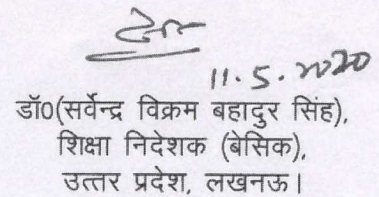 11.5.2020
डॉ0(सर्वेन्द्र विक्रम बहादुर सिंह),
शिक्षा निदेशक (बेसिक),
उत्तर प्रदेश, लखनऊ।